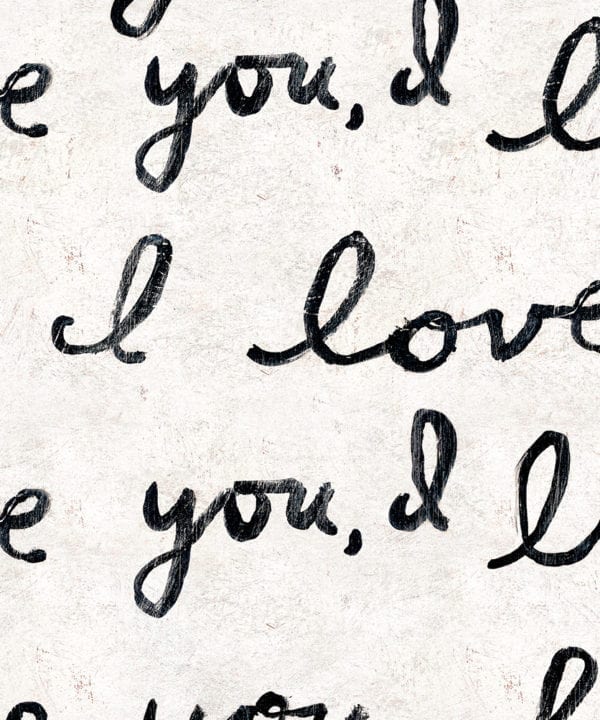 e you, I l
I love
e you, I l
you